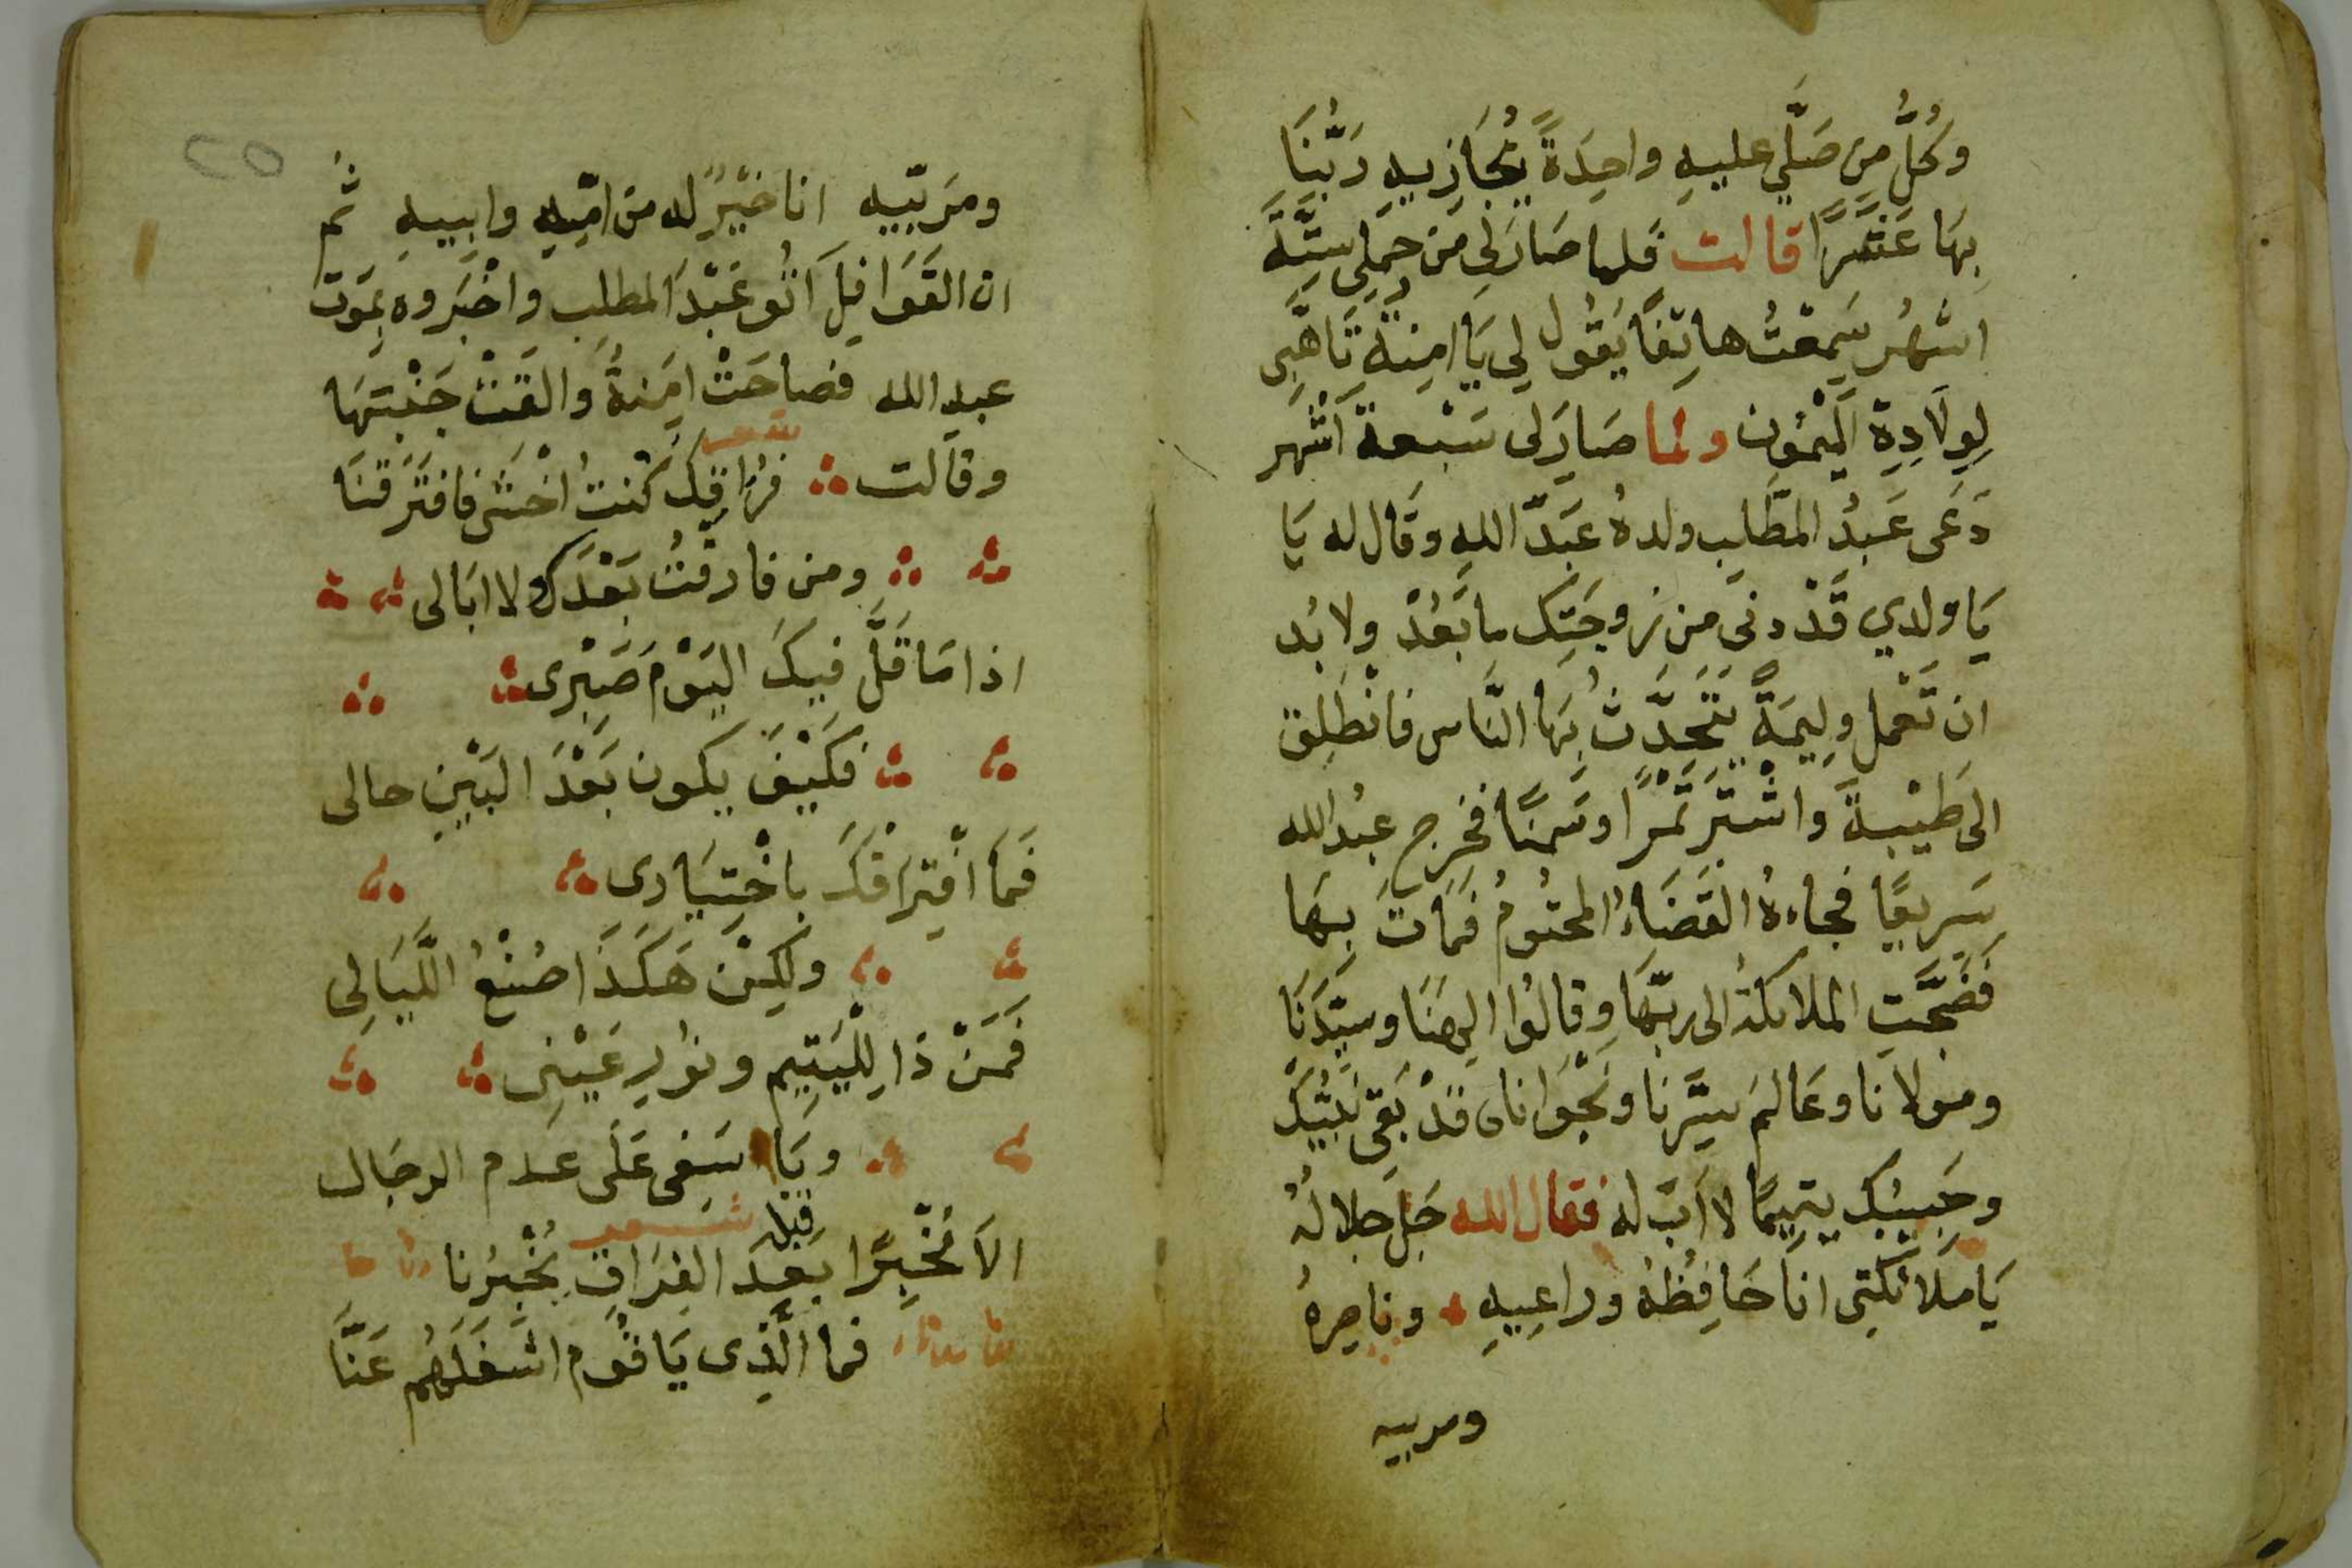 وَكُلُّ مِن صَلَّي عليهِ واحِدَةً يُجَازِيهِ رَبُّنَا
بِهَا عَشْرًا قالت فلما صَارَلِي من حَملِي سِتَّةَ
اشهُر سَمِعْتُ هاتِفًا يَقُول لِي يَا امِنة تَاهَّبِي
لِوِلَادِةِ الْمَيْمُونِ ولما صَارَلى سَبْعة اَشْهر
دَعَى عَبدُ المَطَّلِب ولدهُ عَبَدّ اللهِ وقَال له يَا
يَا ولدي قَدْ دنى من زوجَتِك ما بَعُدْ ولا بُد
ان تَعْمل وِلِيمَةً يَتَحَدَّثُ بِهَا النَّاس فانْطَلِق
الى طَيْبةَ واشْتَرِ تَمْرًا وسَمْنًا فخرج عبُد الله
سَرِيعًا فجاءهُ القَضَاءُ المحتُومُ فمَاتَ بِهَا
فَضَجَّتِ الملائكةُ الى ربّهَا وقالُوا الِهَنَا وسَيِّدَنَا
ومولانا وعَالمَ سِرَّنَا ونَجْوَانا قدْ بَقى نَبيُّكَ
وحَبيبُك يتِيمًا لا اَبَ له فقال الله جَلَّ جلالُهُ
يَا مَلَائكَتِى انَا حَافِظُهُ وراعِيهِ وناصِرهُ
ومربيه
٢٥
ومَربّيهِ انا خَيْرٌ له من امِّهِ وابِيهِ ثُم
ان القَوَافِلَ اَتُو عَبْدَ المطلِب واخْبَروه بمَوت
عبدِ الله فصاحَتْ امِنةُ والقَتْ جَنْبَتَهَا
وقالت فِرُاقِكَ كُنتُ اخْشى فافتَرَقنَا
ومن فارقْتُ بَعْدَك لا ابَالى
اذا مَا قَلَّ فيكَ اليَوْمَ صَبْرِى
فكَيْفَ يكون بَعْدَ البَيْنِ حالى
فَمَا افْتِرَاقُكَ باخْتِيَارى
ولكِنْ هَكَذَا صُنْعُ اللَّيَالِي
فَمَنْ ذَا لِلْيَتِيم ونُورِ عَيْنِى
ويَا اسَفى عَلَى عدم الرجَال
قبله شعر
الَا مُخْبِرًا بَعدَ الفِرَاقِ يُخْبِرُنا
فما الَّذِى يَا قُوم اشغَلهُم عَنَّا